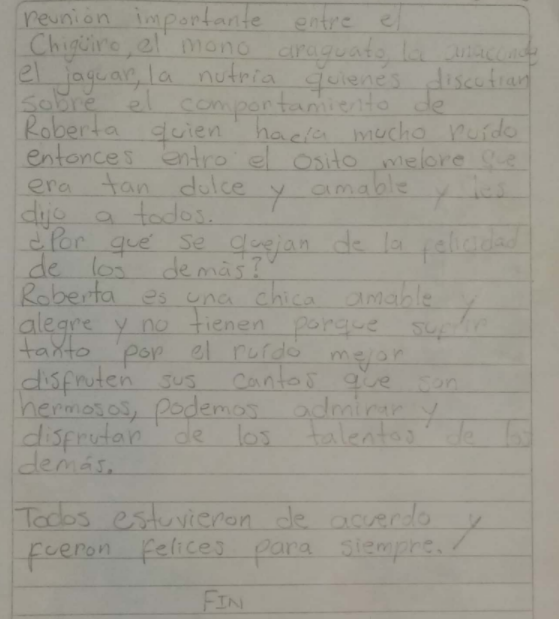 reunión importante entre el
Chigüiro, el mono araguato, la anaconda
el jaguar, la nutria quienes discutian
sobre el comportamiento de
Roberta quien hacía mucho ruido
entonces entro el osito melore que
era tan dulce y amable y les
dijo a todos.
¿Por qué se quejan de la felicidad
de los demás?
Roberta es una chica amable y
alegre y no tienen porque sufrir
tanto por el ruido mejor
disfruten sus cantos que son
hermosos, podemos admirar y
disfrutar de los talentos de los
demás.
Todos estuvieron de acuerdo y
fueron felices para siempre.
FIN